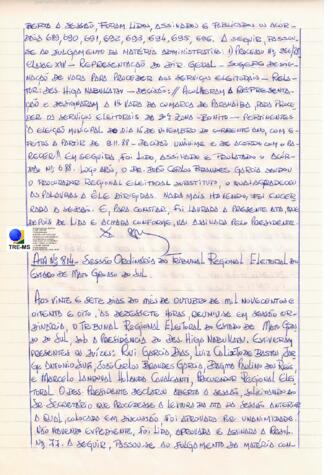 BERTA A SESSÃO, FORAM LIDOS, ASSINADOS E PUBLICADOS OS ACÓR-
DÃOS 689, 690, 691, 692, 693, 694, 695, 696. A SEGUIR, PASSOU-
SE AO JULGAMENTO DA MATÉRIA ADMINISTRATIVA: 1) PROCESSO Nº
CLASSE XIV - REPRESENTAÇÃO DO DIR. GERAL - SUGERE DESIG-
NAÇÃO DE PARA PROCEDER AOS SERVIÇOS ELEITORAIS - RELA-
TOR: DES. HIGA NABUKATSU - DECISÃO: ACOLHERAM A REPRESENTA-
ÇÃO E DESIGNARAM A DA COMARCA DE PARA PROCE-
DER OS SERVIÇOS ELEITORAIS DA ZONA - BONITO - PERTINENTES
À ELEIÇÃO MUNICIPAL DO DIA 15 DE NOVEMBRO DO CORRENTE ANO, COM E-
FEITOS A PARTIR DE DECISÃO UNÂNIME E DE ACORDO COM O PA-
RECER. EM SEGUIDA FOI LIDO, ASSINADO E PUBLICADO O ACÓR-
DÃO Nº LOGO APÓS, O DR. JOÃO CARLOS BRANDES GARCIA SAUDOU
O PROCURADOR REGIONAL ELEITORAL SUBSTITUTO, O QUAL AGRADECEU
AS PALAVRAS A ELE DIRIGIDAS. NADA MAIS HAVENDO, FOI ENCER-
RADA A SESSÃO. E, PARA CONSTAR, FOI LAVRADA A PRESENTE ATA, QUE
DEPOIS DE LIDA E ACHADA CONFORME, VAI ASSINADA PELO PRESIDENTE.
TRE-MS
ATA Nº 814 - SESSÃO ORDINÁRIA DO TRIBUNAL REGIONAL ELEITORAL DO
ESTADO DE MATO GROSSO DO SUL
AOS VINTE E SETE DIAS DO MÊS DE OUTUBRO DE MIL NOVECENTOS E
OITENTA E OITO, ÀS DEZESSETE HORAS, REUNIU-SE EM SESSÃO OR-
DINÁRIA, O TRIBUNAL REGIONAL ELEITORAL DO ESTADO DE MATO GROS-
SO DO SUL, SOB A PRESIDÊNCIA DO DES. HIGA NABUKATSU. ESTIVERAM
PRESENTES OS JUÍZES: RUI GARCIA DIAS, LUIZ CALIXTO DE BASTOS, JOR-
GE ANTONIO SIUFI, JOÃO CARLOS BRANDES GARCIA, PAULINO DOS REIS
E MARCELO LANDIVAL HOLANDA CAVALCANTI, PROCURADOR REGIONAL ELEI-
TORAL. O DES. PRESIDENTE DECLAROU ABERTA A SESSÃO, SOLICITANDO AO
SR. SECRETÁRIO QUE PROCEDESSE A LEITURA DA ATA DA SESSÃO ANTERIOR
A QUAL, COLOCADA EM DISCUSSÃO FOI APROVADA POR UNANIMIDADE.
NÃO HAVENDO EXPEDIENTE, FOI LIDA, APROVADA E ASSINADA A RESOL.
Nº 77. A SEGUIR, PASSOU-SE AO JULGAMENTO DA MATÉRIA CON-